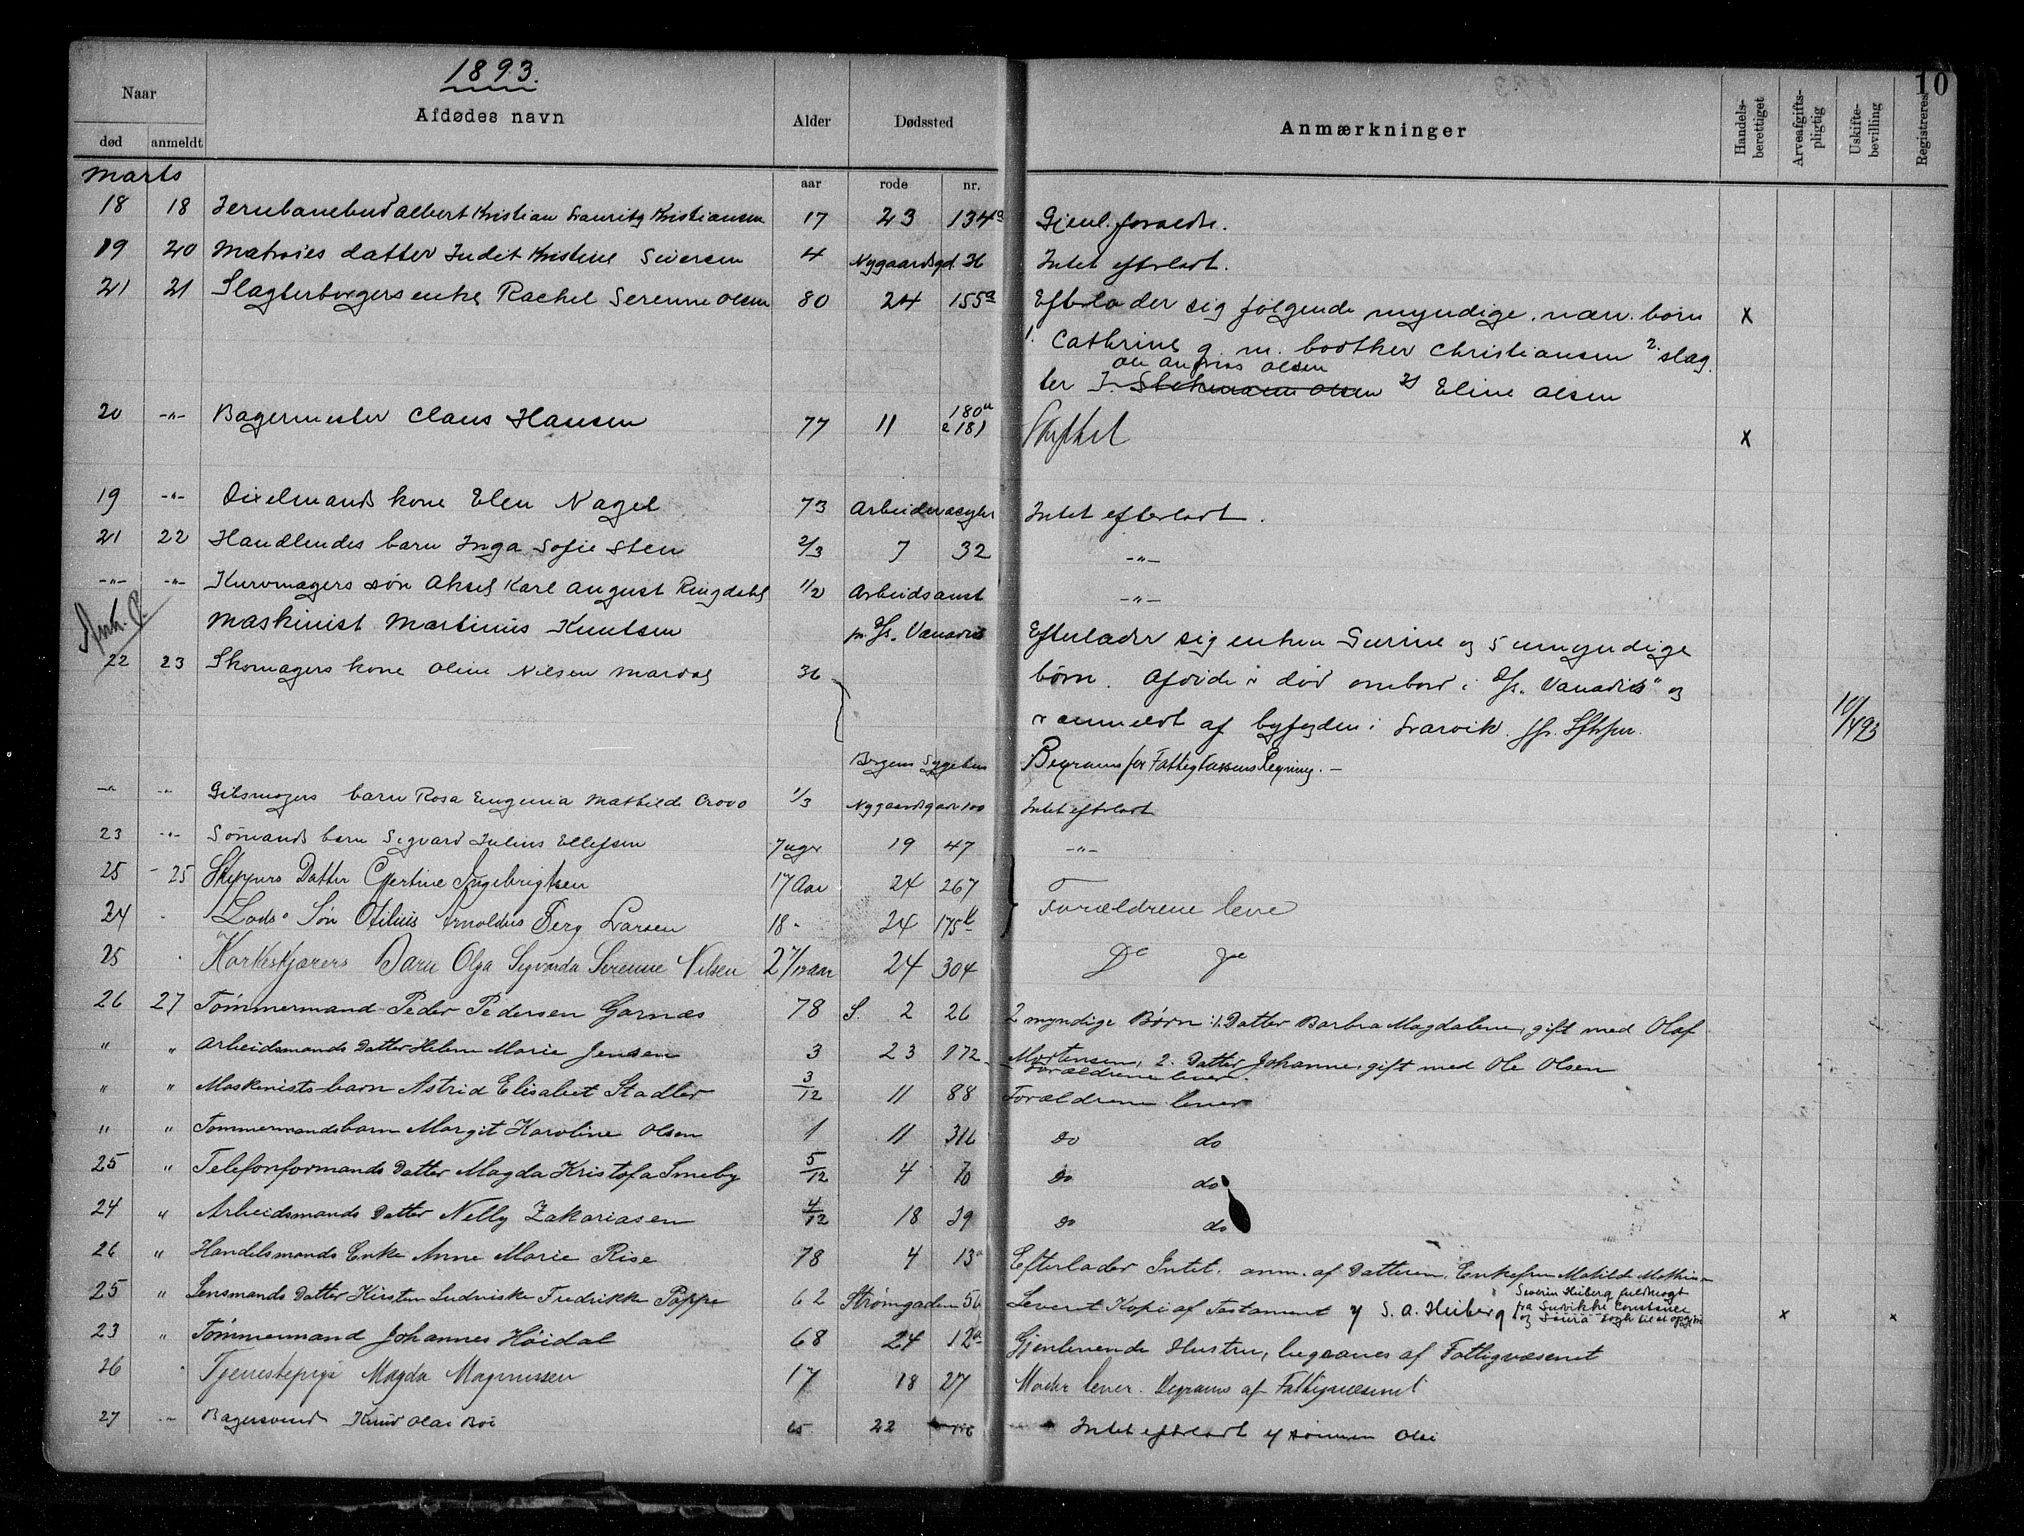 1893.
10
Naar
Afdødes navn
Alder
Dødssted
Anmærkninger
Handels-
berettiget
Arveafgifts-
pligtig
Uskifte-
bevilling
Registreres
død anmeldt
Marts
aar rode nr.
18 18 Jernbanebud Albert Kristian Lauritz Kristiansen 17 23 134a Gjenl. foræld.
19 20 Matroses datter Judit Kristine Siversen 4 Nygaardsgd. 36 Intet efterladt.
21 21 Slagterborgers enke Rachel Serenne Olsen 80 24 155a Efterlader sig følgende myndige, nærv. børn x
1. Cathrine g. m. bødker Christiansen 2. slag
Ole Andreas Olsen
ter 3) Eline Olsen
20 -"- Bagermester Claus Hansen 77 11 180a & 181 Skiftet x
19 -"- kone Elen Nagel 73 Arbeiderasylet Intet efterladt.
21 22 Handlendes barn Inga Sofie Sten 2/3 7 32 -"-
-"- -"- Kurvmagers søn Aksel Karl August Ringdahl 1/2 Arbeidsanst -"-
Anh. C.
Maskinist Martinus Knutsen pr. D/s. Vanadis Efterlader sig enken Gurine og 5 umyndige
22 23 Skomagers kone Oline Nilsen Mardal 36 børn. Afdøde er død ombord i D/s. "Vanadis" og
er anmeldt af byfogden i Larvik. 10/4 93
Bergens Sygehus Begraves for Fattigkassens Regning. -
-"- -"- Gibsmagers barn Rosa Eugenia Mathilde Crovo 1/3 Nygaardsgaden 100 Intet efterladt
23 -"- Sømands barn Sigvard Julius Ellefsen 7 uger 19 47 -"-
25 - 25 Skippers Datter Gjertine Ingebrigtsen 17 Aar 24 267
24 Lods Søn Otilius Arnoldus Berg Larsen 18 - 24 175b Forældrene leve
25 Korkeskjærers Barn Olga Sigvarda Serenne Nilsen 2 7/12 aar 24 304 Do Do
26 27 Tømmermand Peder Pedersen Garnæs 78 S. 2 26 2 myndige Børn: 1. Datter Barbra Magdalene, gift med Olaf
" " Arbeidsmands Datter Helene Marie Jensen 3 23 172 Mortensen, 2. Datter Johanne, gift med Ole Olsen
Forældrene lever.
" " Maskinists barn Astrid Elisabet Stadler 3/12 11 88 Forældrene lever
" " Tømmermandsbarn Margit Karoline Olsen 1 11 316 do do
25 " Telefonformands Datter Magda Kristofa Smeby 5/12 4 70 do do
24 " Arbeidsmands Datter Nelly Zakariasen 4/12 18 39 do do
26 " Handelsmands Enke Anne Marie Rise 78 4 13a Efterlader Intet. anm. af Datteren, Enkefru Matilde Mathisen
25 " Lensmands Datter Kirsten Ludviske Fredrikke Poppe 62 Strømgaden 56 Levert Kopi af Testament v/ S. A. Heiberg x x
Severin Heiberg fuldmagt
fra
23 " Tømmermand Johannes Høidal 68 24 12a Gjenlevende Hustru, begraves af Fattigvæsenet
26 " Tjenestepige Magda Magnussen 17 18 27 Moder lever. Begraves af Fattigvæsenet
27 -"- Bagersvend Knud Olai Boe 65 22 Intet efterladt v/ sønnen Olai